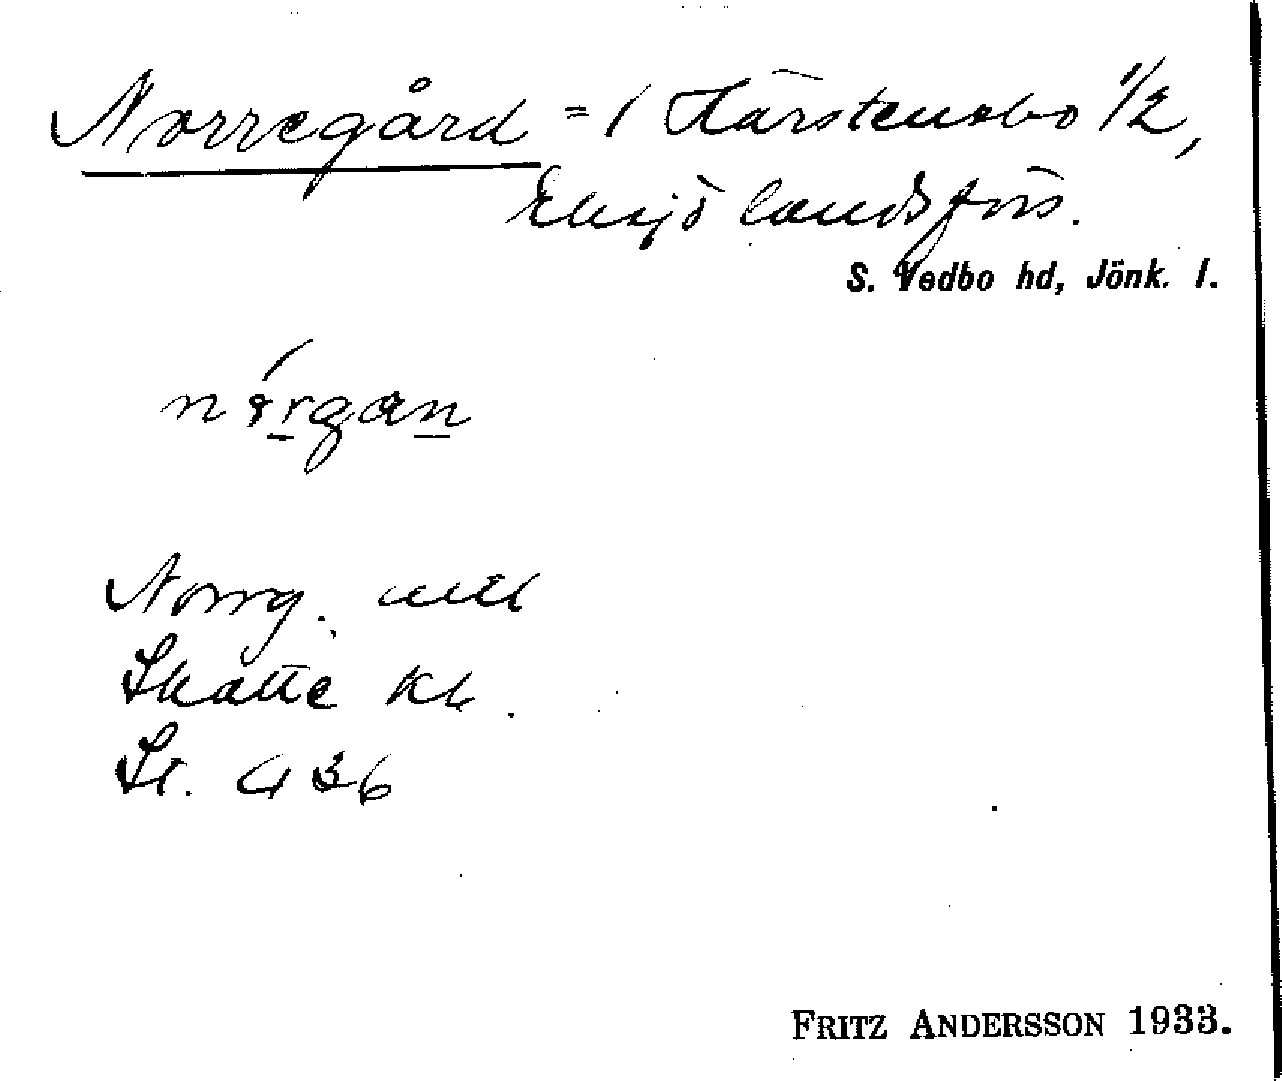 Norregård = 1 Härstensbo 1/2,
Eksjö landsförs.
S. Vedbo hd, Jönk. l.
Norrg.
Skatte kl.
St. 436
FRITZ ANDERSSON 1933.